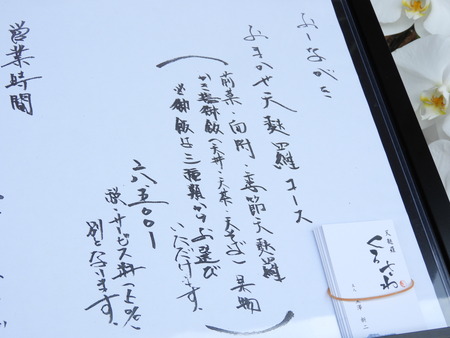 おしながき
おまかせ天麩羅コース
前菜・向附・季節天麩羅
かき揚御飯(天丼・天茶・天そば) 果物
※御飯は三種類からお選び
いただけます。
六、五〇〇ー
税・サービス料(10%)
別となります。
営業時間
天麩羅
くろさわ